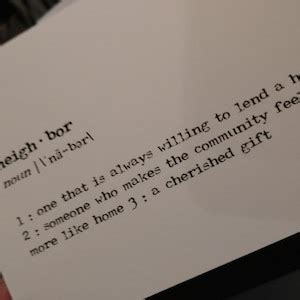 neigh·bor
noun |ˈnā-bər|
1 : one that is always willing to lend a
2 : someone who makes the community feel
more like home 3 : a cherished gift